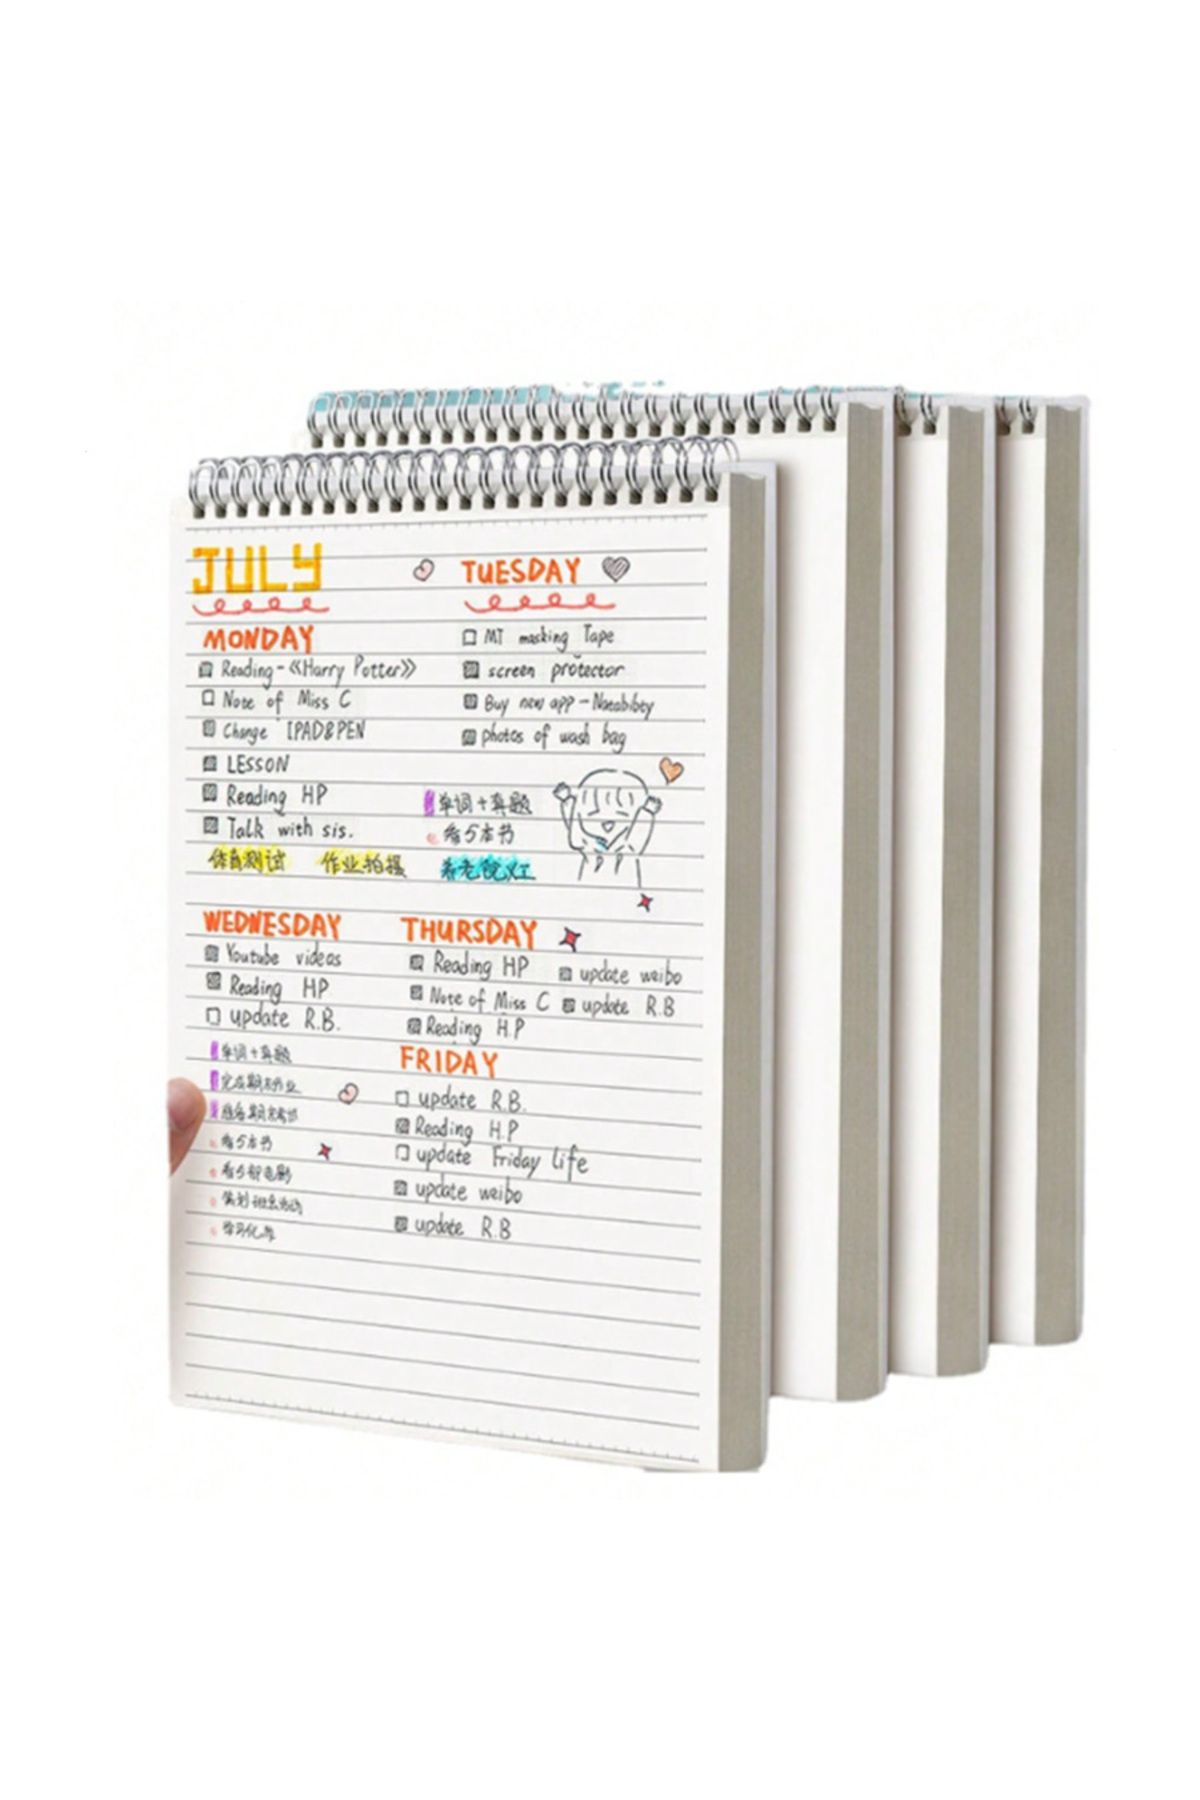 JULY
MONDAY
Reading-《Harry Potter》
Note of Miss C
Change IPAD&PEN
LESSON
Reading HP
Talk with sis.
体育测试 作业拍摄
TUESDAY
MT masking Tape
screen protector
Buy new app - Notability
photos of wash bag
单词+真题
看5本书
养老院义工
WEDNESDAY
Youtube videos
Reading HP
update R.B.
单词+真题
完成期末作业
准备期末考试
看5本书
看5部电影
策划班会活动
学习化妆
THURSDAY
Reading HP
Note of Miss C
Reading H.P
update weibo
update R.B
FRIDAY
update R.B.
Reading H.P
update Friday life
update weibo
update R.B